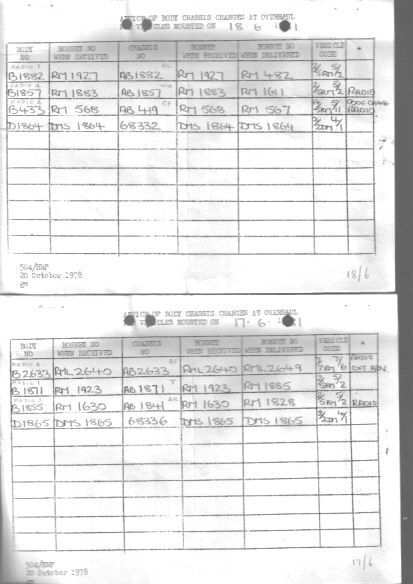 ADVICE OF BODY CHASSIS CHANGES AT OVERHAUL
VEHICLES MOUNTED ON 18 6 81
BODY NO BONNET NO WHEN RECEIVED CHASSIS NO BONNET WHEN RECEIVED BONNET NO WHEN DELIVERED VEHICLE CODE *
RADIO 1 AL
B1882 RM 1927 AB1882 RM 1927 RM 482 2/5RM 5/2
RADIO 4 WH
B1857 RM 1883 AB1857 RM 1883 RM 1611 2/5RM 5/2 RADIO
RADIO 4 CF
B433 RM 568 AB 419 RM 568 RM 567 5/11 CODE CHANGE RADIO
D1864 DMS 1864 68332 DMS 1864 DMS 1864 2/2DM 4/1
504/EMP
20 October 1978
18/6
ADVICE OF BODY CHASSIS CHANGES AT OVERHAUL
VEHICLES MOUNTED ON 17-6-81
BODY NO BONNET NO WHEN RECEIVED CHASSIS NO BONNET WHEN RECEIVED BONNET NO WHEN DELIVERED VEHICLE CODE *
RADIO 4 AF
B2633 RML2640 AB2633 RML2640 RML2649 7RM 7/6 RADIO EXT ADV.
RADIO 1 T
B1871 RM 1923 AB1871 RM 1923 RM 1885 2/5RM 5/2
RADIO AK
B1855 RM 1630 AB 1841 RM 1630 RM 1828 2/5RM 5/2 RADIO
D1865 DMS 1865 68336 DMS 1865 DMS 1865 2/2DM 4/1
504/EMP
20 October 1978
17/6